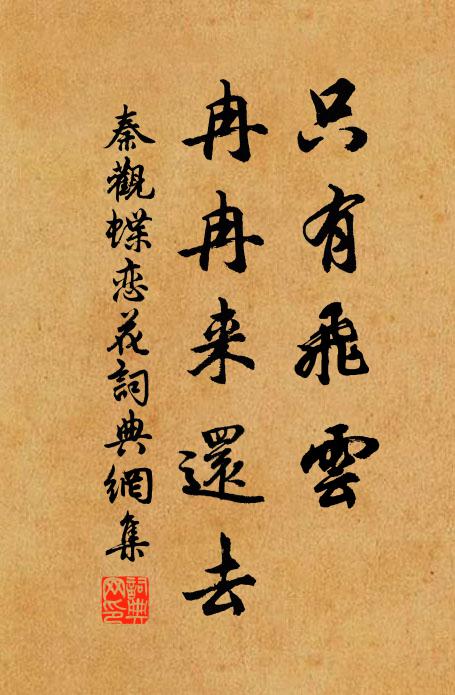 只有飛雲
冉冉来還去
秦觀蝶恋花詞典網集
詞典网印